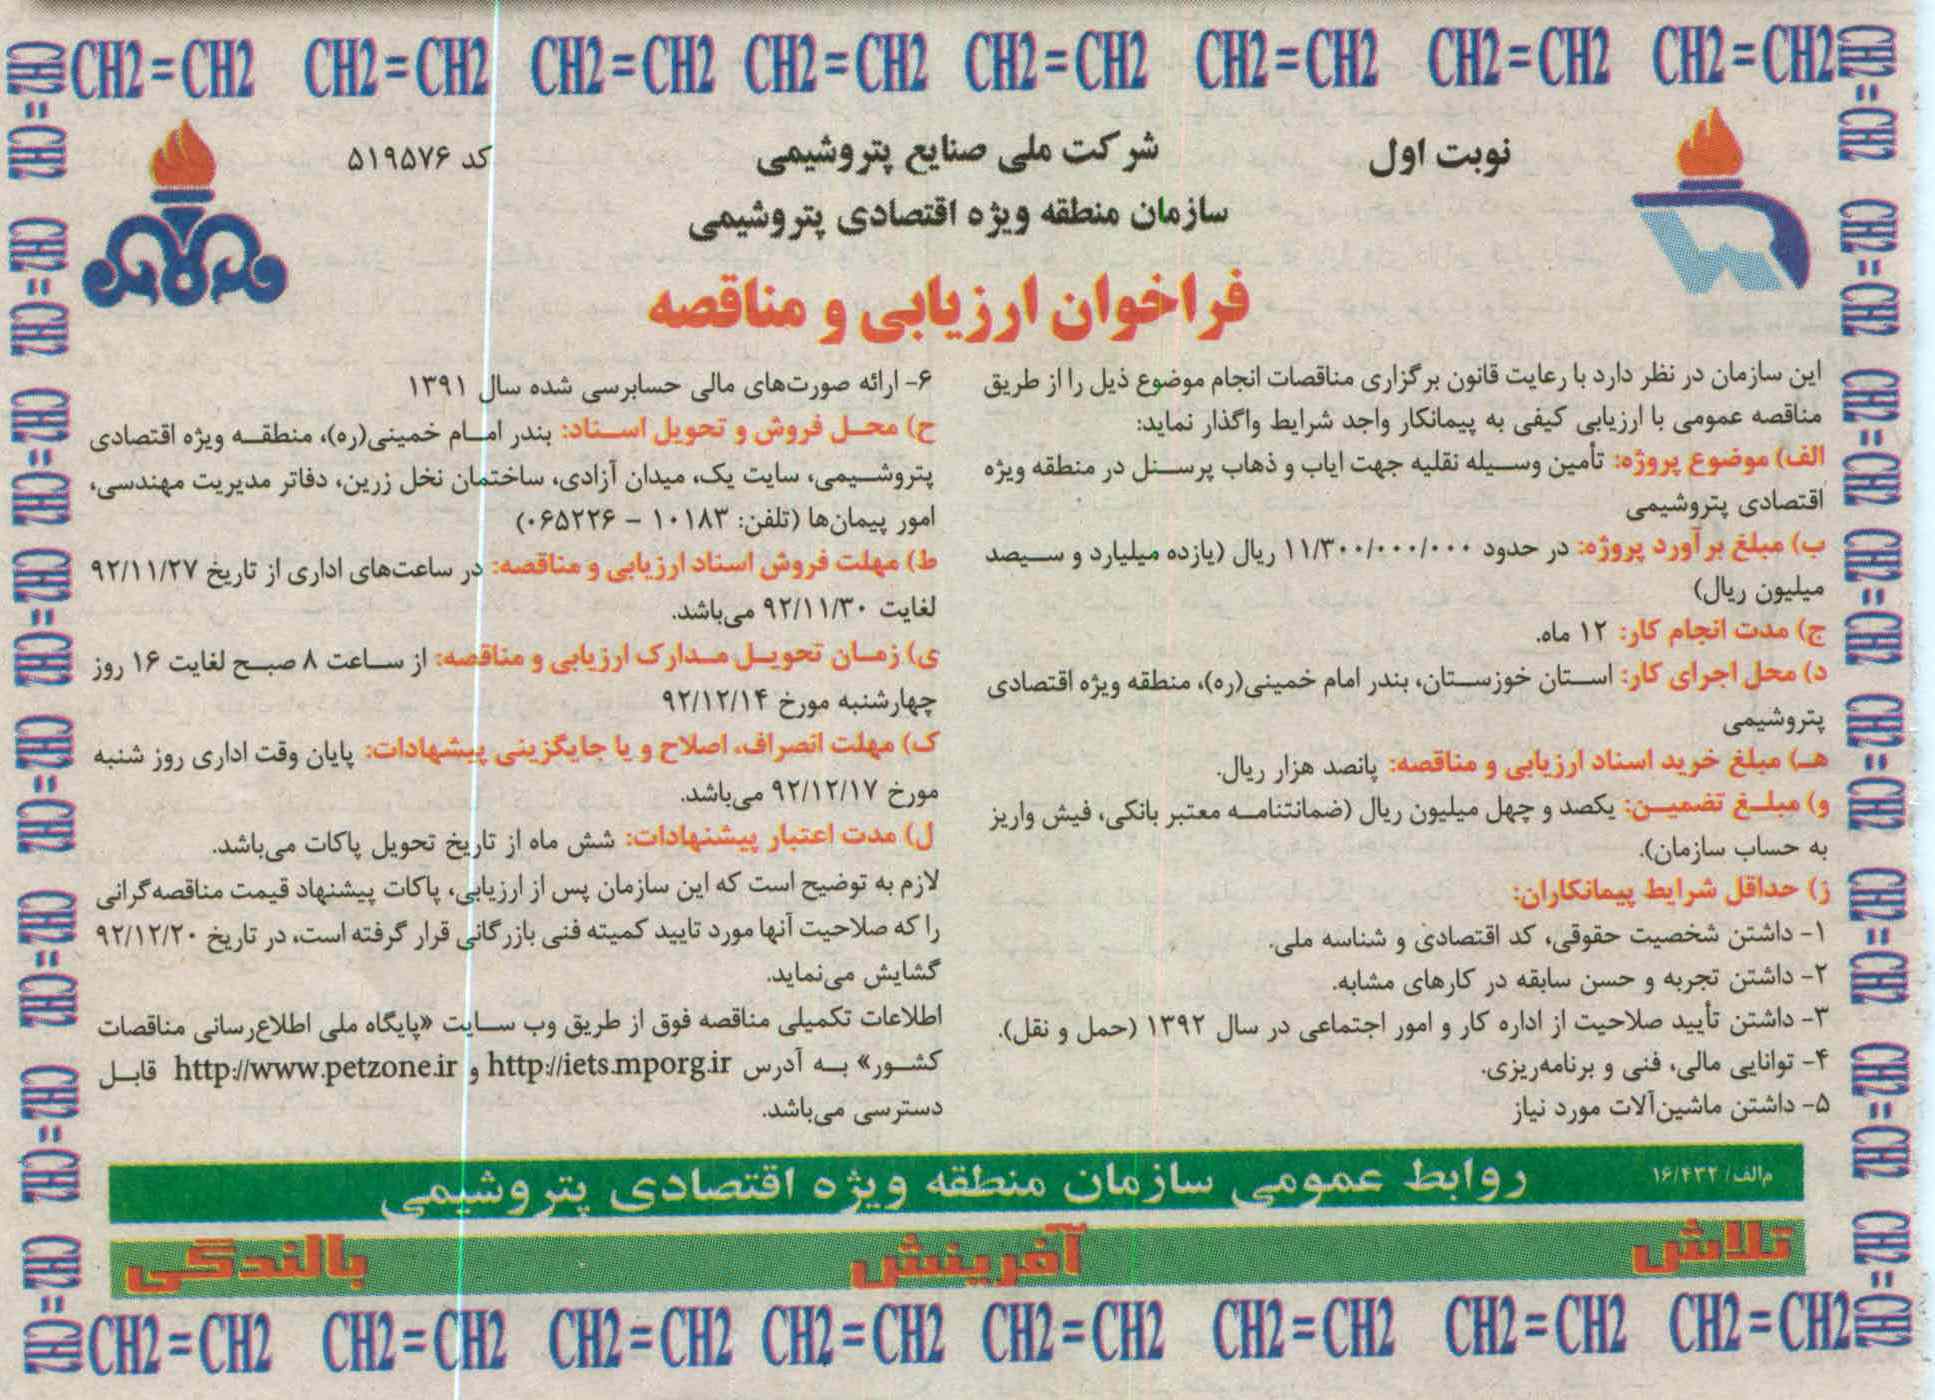 CH2=CH2 CH2=CH2 CH2=CH2 CH2=CH2 CH2=CH2 CH2=CH2 CH2=CH2 CH2=CH2
نوبت اول
شرکت ملی صنایع پتروشیمی
کد ۵۱۹۵۷۶
سازمان منطقه ویژه اقتصادی پتروشیمی
فراخوان ارزیابی و مناقصه
این سازمان در نظر دارد با رعایت قانون برگزاری مناقصات انجام موضوع ذیل را از طریق
مناقصه عمومی با ارزیابی کیفی به پیمانکار واجد شرایط واگذار نماید:
الف) موضوع پروژه: تأمین وسیله نقلیه جهت ایاب و ذهاب پرسنل در منطقه ویژه
اقتصادی پتروشیمی
ب) مبلغ برآورد پروژه: در حدود ۱۱/۳۰۰/۰۰۰/۰۰۰ ریال (یازده میلیارد و سیصد
میلیون ریال)
ج) مدت انجام کار: ۱۲ ماه.
د) محل اجرای کار: استان خوزستان، بندر امام خمینی(ره)، منطقه ویژه اقتصادی
پتروشیمی
هـ) مبلغ خرید اسناد ارزیابی و مناقصه: پانصد هزار ریال.
و) مبلغ تضمین: یکصد و چهل میلیون ریال (ضمانتنامه معتبر بانکی، فیش واریز
به حساب سازمان).
ز) حداقل شرایط پیمانکاران:
۱- داشتن شخصیت حقوقی، کد اقتصادی و شناسه ملی.
۲- داشتن تجربه و حسن سابقه در کارهای مشابه.
۳- داشتن تأیید صلاحیت از اداره کار و امور اجتماعی در سال ۱۳۹۲ (حمل و نقل).
۴- توانایی مالی، فنی و برنامه‌ریزی.
۵- داشتن ماشین‌آلات مورد نیاز
۶- ارائه صورت‌های مالی حسابرسی شده سال ۱۳۹۱
ح) محل فروش و تحویل اسناد: بندر امام خمینی(ره)، منطقه ویژه اقتصادی
پتروشیمی، سایت یک، میدان آزادی، ساختمان نخل زرین، دفاتر مدیریت مهندسی،
امور پیمان‌ها (تلفن: ۱۰۱۸۳ – ۰۶۵۲۲۶)
ط) مهلت فروش اسناد ارزیابی و مناقصه: در ساعت‌های اداری از تاریخ ۹۲/۱۱/۲۷
لغایت ۹۲/۱۱/۳۰ می‌باشد.
ی) زمان تحویل مدارک ارزیابی و مناقصه: از ساعت ۸ صبح لغایت ۱۶ روز
چهارشنبه مورخ ۹۲/۱۲/۱۴
ک) مهلت انصراف، اصلاح و یا جایگزینی پیشهادات: پایان وقت اداری روز شنبه
مورخ ۹۲/۱۲/۱۷ می‌باشد.
ل) مدت اعتبار پیشنهادات: شش ماه از تاریخ تحویل پاکات می‌باشد.
لازم به توضیح است که این سازمان پس از ارزیابی، پاکات پیشنهاد قیمت مناقصه‌گرانی
را که صلاحیت آنها مورد تایید کمیته فنی بازرگانی قرار گرفته است، در تاریخ ۹۲/۱۲/۲۰
گشایش می‌نماید.
اطلاعات تکمیلی مناقصه فوق از طریق وب سایت «پایگاه ملی اطلاع‌رسانی مناقصات
کشور» به آدرس http://iets.mporg.ir و http://www.petzone.ir قابل
دسترسی می‌باشد.
م‌الف/ ۱۶/۴۳۲
روابط عمومی سازمان منطقه ویژه اقتصادی پتروشیمی
تلاش آفرینش بالندگی
CH2=CH2 CH2=CH2 CH2=CH2 CH2=CH2 CH2=CH2 CH2=CH2 CH2=CH2 CH2=CH2
CH2=CH2 CH2=CH2 CH2=CH2 CH2=CH2 CH2=CH2 CH2=CH2 CH2=CH2 CH2=CH2
CH2=CH2 CH2=CH2 CH2=CH2 CH2=CH2 CH2=CH2 CH2=CH2 CH2=CH2 CH2=CH2